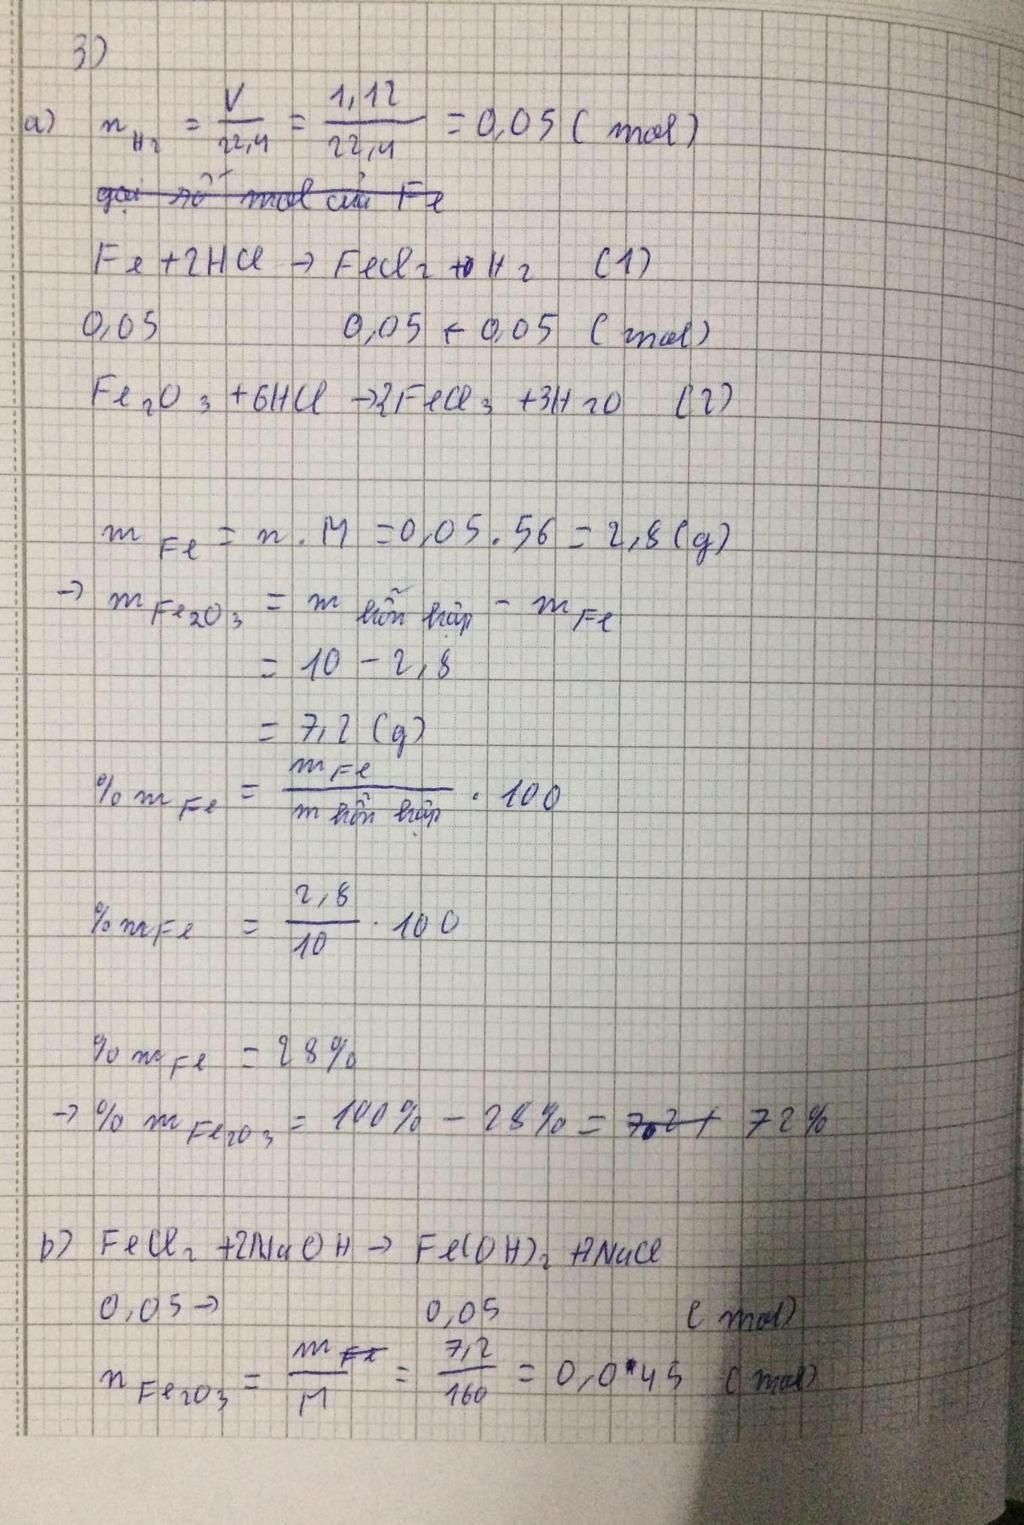 3)
a) n H2 = V/22,4 = 1,12/22,4 = 0,05 (mol)
gọi số mol của Fe
Fe + 2HCl → FeCl2 + H2 (1)
0,05 0,05 ← 0,05 (mol)
Fe2O3 + 6HCl → 2FeCl3 + 3H2O (2)
m Fe = n . M = 0,05 . 56 = 2,8 (g)
→ m Fe2O3 = m hỗn hợp - m Fe
= 10 - 2,8
= 7,2 (g)
% m Fe = m Fe / m hỗn hợp . 100
% m Fe = 2,8/10 . 100
% m Fe = 28%
→ % m Fe2O3 = 100% - 28% = 72%
b) FeCl2 + 2NaOH → Fe(OH)2 + 2NaCl
0,05 → 0,05 (mol)
n Fe2O3 = m/M = 7,2/160 = 0,045 (mol)